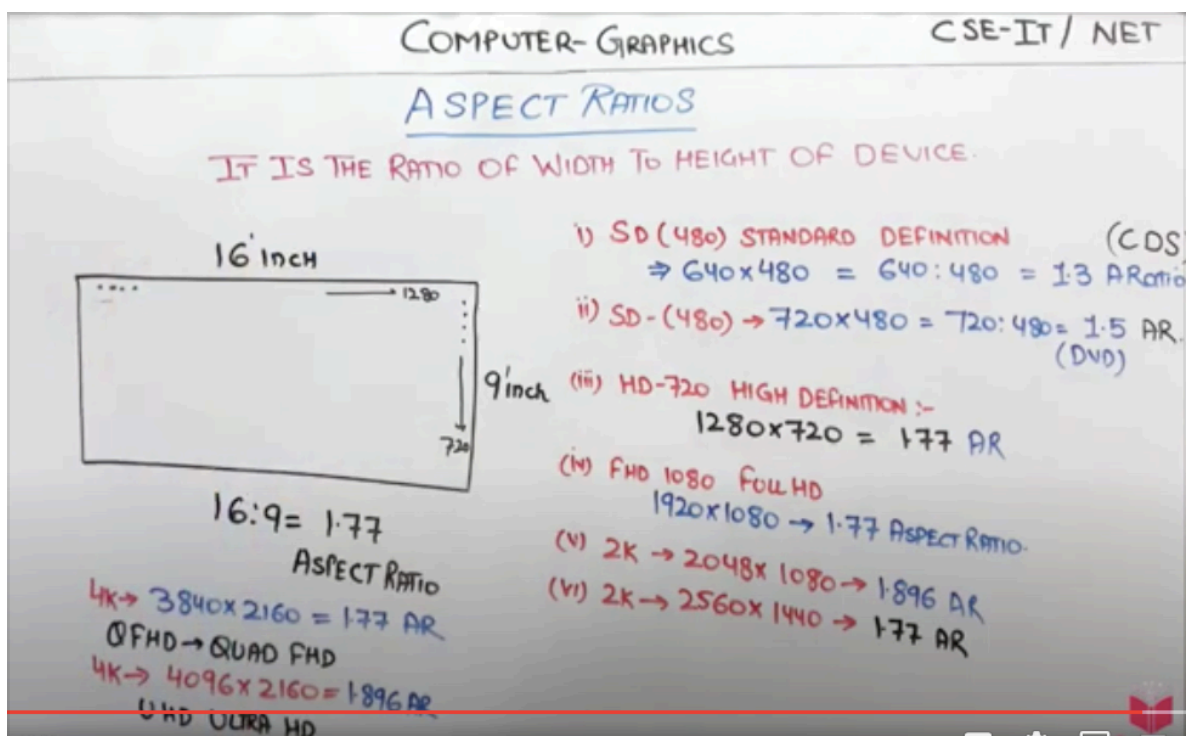 COMPUTER-GRAPHICS
CSE-IT / NET
ASPECT RATIOS
IT IS THE RATIO OF WIDTH TO HEIGHT OF DEVICE.
16 inch
.... → 1280
9 inch
720
16:9 = 1.77
ASPECT RATIO
4K→ 3840×2160 = 1.77 AR
QFHD→QUAD FHD
4K→ 4096×2160=1.896 AR
UHD ULTRA HD
i) SD (480) STANDARD DEFINITION (CDS)
⇒ 640×480 = 640:480 = 1.3 ARatio
ii) SD-(480) → 720×480 = 720:480= 1.5 AR.
(DVD)
(iii) HD-720 HIGH DEFINITION :-
1280×720 = 1.77 AR
(iv) FHD 1080 FULL HD
1920×1080 → 1.77 ASPECT RATIO.
(v) 2K → 2048× 1080→ 1.896 AR
(vi) 2K→ 2560×1440 → 1.77 AR